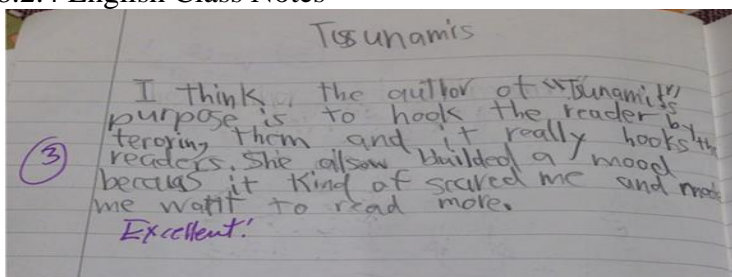 English Class Notes
Tsunamis
I think the author of "Tsunamis"
purpose is to hook the reader by
teroring them and it really hooks the
readers. She allsow builded a mood
becaus it kind of scared me and made
me want to read more.
3
Excellent!